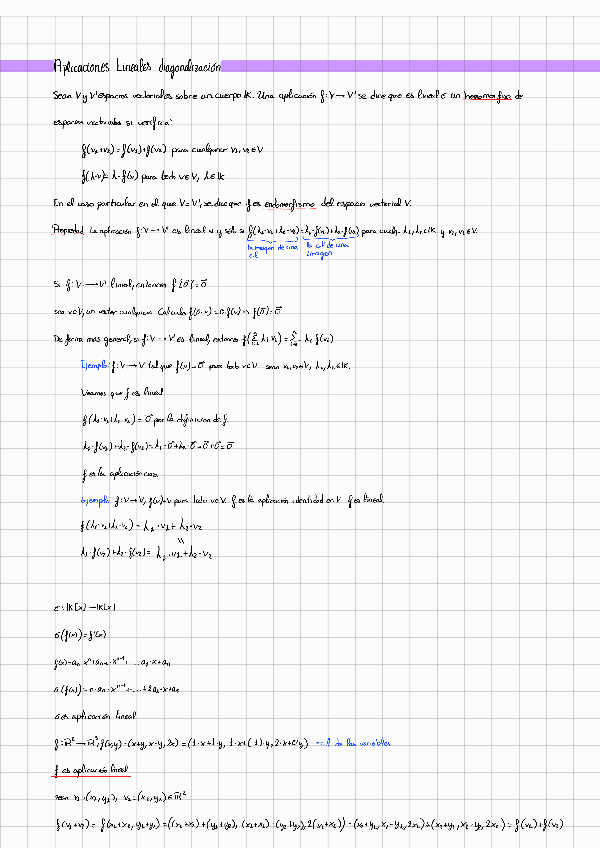 Aplicaciones Lineales diagonalización
Sean V y V' espacios vectoriales sobre un cuerpo K. Una aplicación f: V → V' se dice que es lineal o un homomorfismo de
espacios vectoriales si verifica:
f(v₁+v₂)=f(v₁)+f(v₂) para cualquier v₁,v₂∈V
f(λ·v)=λ·f(v) para todo v∈V, λ∈K
En el caso particular en el que V=V', se dice que f es endomorfismo del espacio vectorial V.
Propiedad La aplicación f: V → V' es lineal si y sólo si f(λ₁·v₁+λ₂·v₂)=λ₁·f(v₁)+λ₂·f(v₂) para cualq. λ₁,λ₂∈K y v₁,v₂∈V.
la imagen de una c.l
la c.l de una imagen
Si f: V → V' lineal, entonces f(0⃗)=0⃗
sea v∈V, un vector cualquiera. Calculo f(0·v)=0·f(v) => f(0⃗)=0⃗
De forma más general, si f: V → V' es lineal, entonces f(∑ λᵢ vᵢ)=∑ λᵢ f(vᵢ)
Ejemplo: f: V → V' tal que f(v)=0⃗ para todo v∈V sean v₁,v₂∈V, λ₁,λ₂∈K.
Veamos que f es lineal
f(λ₁·v₁+λ₂·v₂)=0⃗ por la definición de f
λ₁·f(v₁)+λ₂·f(v₂)=λ₁·0⃗+λ₂·0⃗=0⃗+0⃗=0⃗
f es la aplicación cero
Ejemplo: f: V → V, f(v)=v para todo v∈V. f es la aplicación identidad en V f es lineal.
f(λ₁·v₁+λ₂·v₂)=λ₁·v₁+λ₂·v₂
"
λ₁·f(v₁)+λ₂·f(v₂)=λ₁·v₁+λ₂·v₂
σ: K[x] → K[x]
σ(f(x))=f'(x)
f(x)=aₙ·xⁿ+aₙ₋₁·xⁿ⁻¹+...a₁·x+a₀
σ(f(x))=n·aₙ·xⁿ⁻¹+...+2a₂·x+a₁
σ es aplicación lineal
f: ℝ² → ℝ³, f(x,y)=(x+y, x-y, 2x)=(1·x+1·y, 1·x+(-1)·y, 2·x+0·y) → c.l de las variables
f es aplicación lineal
sean v₁=(x₁,y₁), v₂=(x₂,y₂)∈ℝ²
f(v₁+v₂)=f(x₁+x₂, y₁+y₂)=((x₁+x₂)+(y₁+y₂), (x₁+x₂)-(y₁+y₂), 2(x₁+x₂))=(x₁+y₁, x₁-y₁, 2x₁)+(x₂+y₂, x₂-y₂, 2x₂)=f(v₁)+f(v₂)